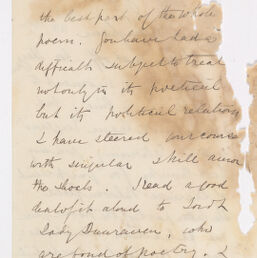 the best part of the whole
poem. You have had a
difficult subject to treat
not only in its poetical
but its political relations
& have steered your course
with singular skill among
the shoals. I read a good
deal of it aloud to Lord &
Lady Dunraven, who
are fond of poetry. I